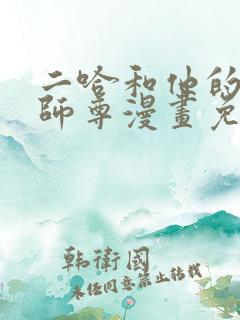 二哈和他的
師尊漫畫免
韩衛國
未经同意禁止转载